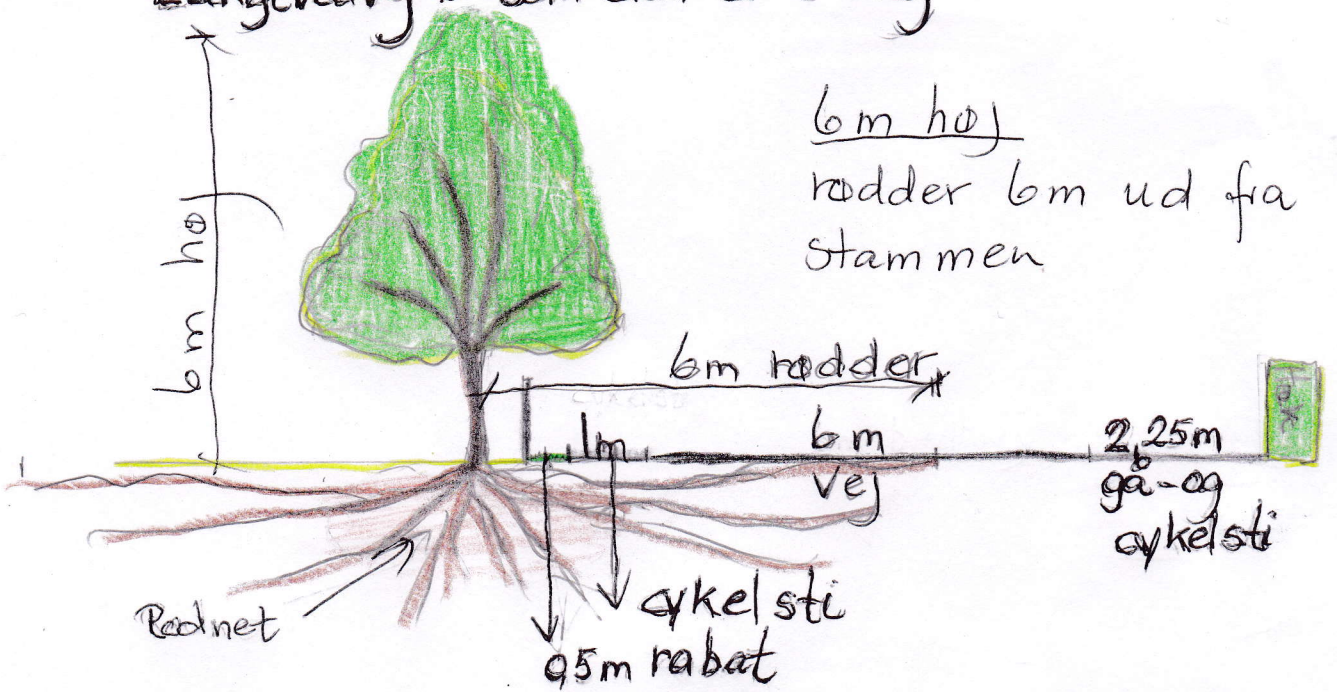 6m høj
rødder 6m ud fra
stammen
6m hø
6m rødder
1m
6m
vej
2,25m
gå-og
cykelsti
Rodnet
cykelsti
0,5m rabat